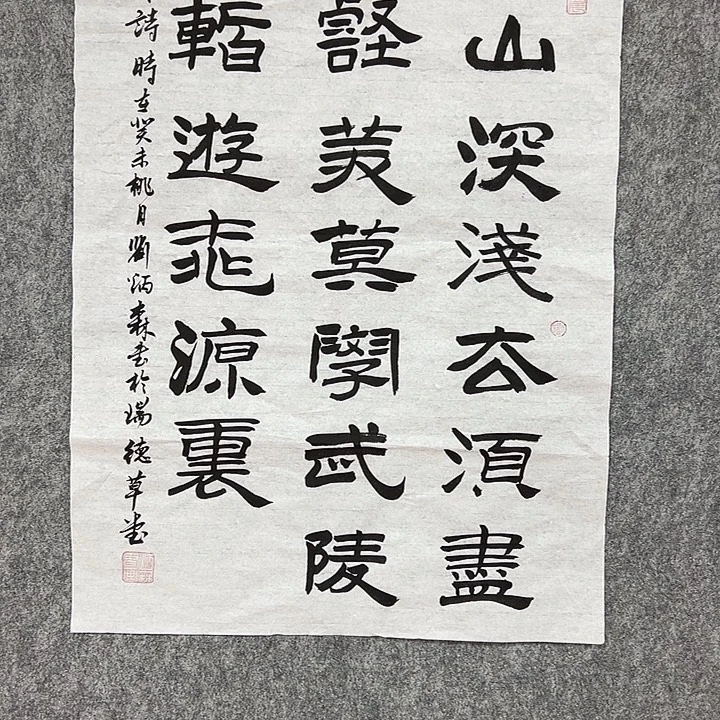 山深淺去須盡
壑美莫學武陵
暫遊桃源裏
詩時在癸未桃月劉炳森書於瑞德草堂